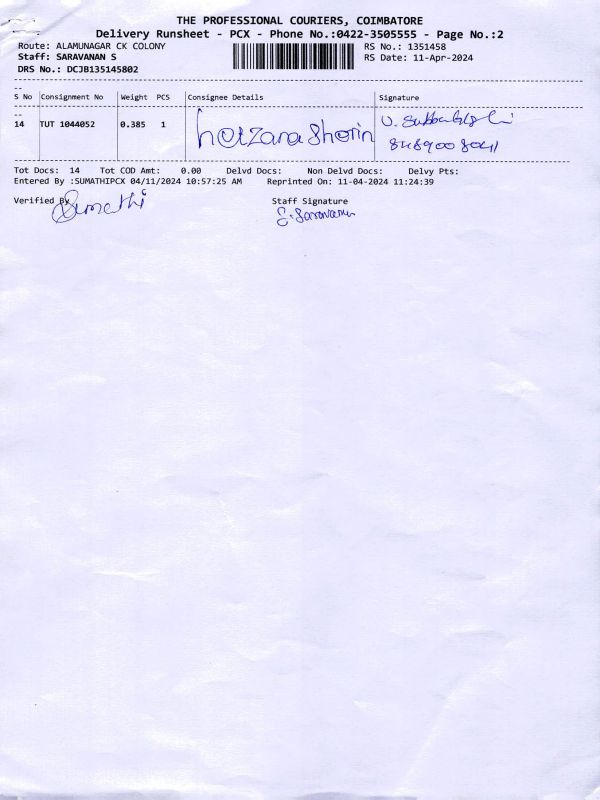 THE PROFESSIONAL COURIERS, COIMBATORE
Delivery Runsheet - PCX - Phone No.:0422-3505555 - Page No.:2
Route: ALAMUNAGAR CK COLONY
RS No.: 1351458
Staff: SARAVANAN S
RS Date: 11-Apr-2024
DRS No.: DCJB135145802
S No Consignment No Weight PCS Consignee Details Signature
14 TUT 1044052 0.385 1
Tot Docs: 14 Tot COD Amt: 0.00 Delvd Docs: Non Delvd Docs: Delvy Pts:
Entered By :SUMATHIPCX 04/11/2024 10:57:25 AM Reprinted On: 11-04-2024 11:24:39
Verified By Staff Signature
Sumathi S. Saravanan